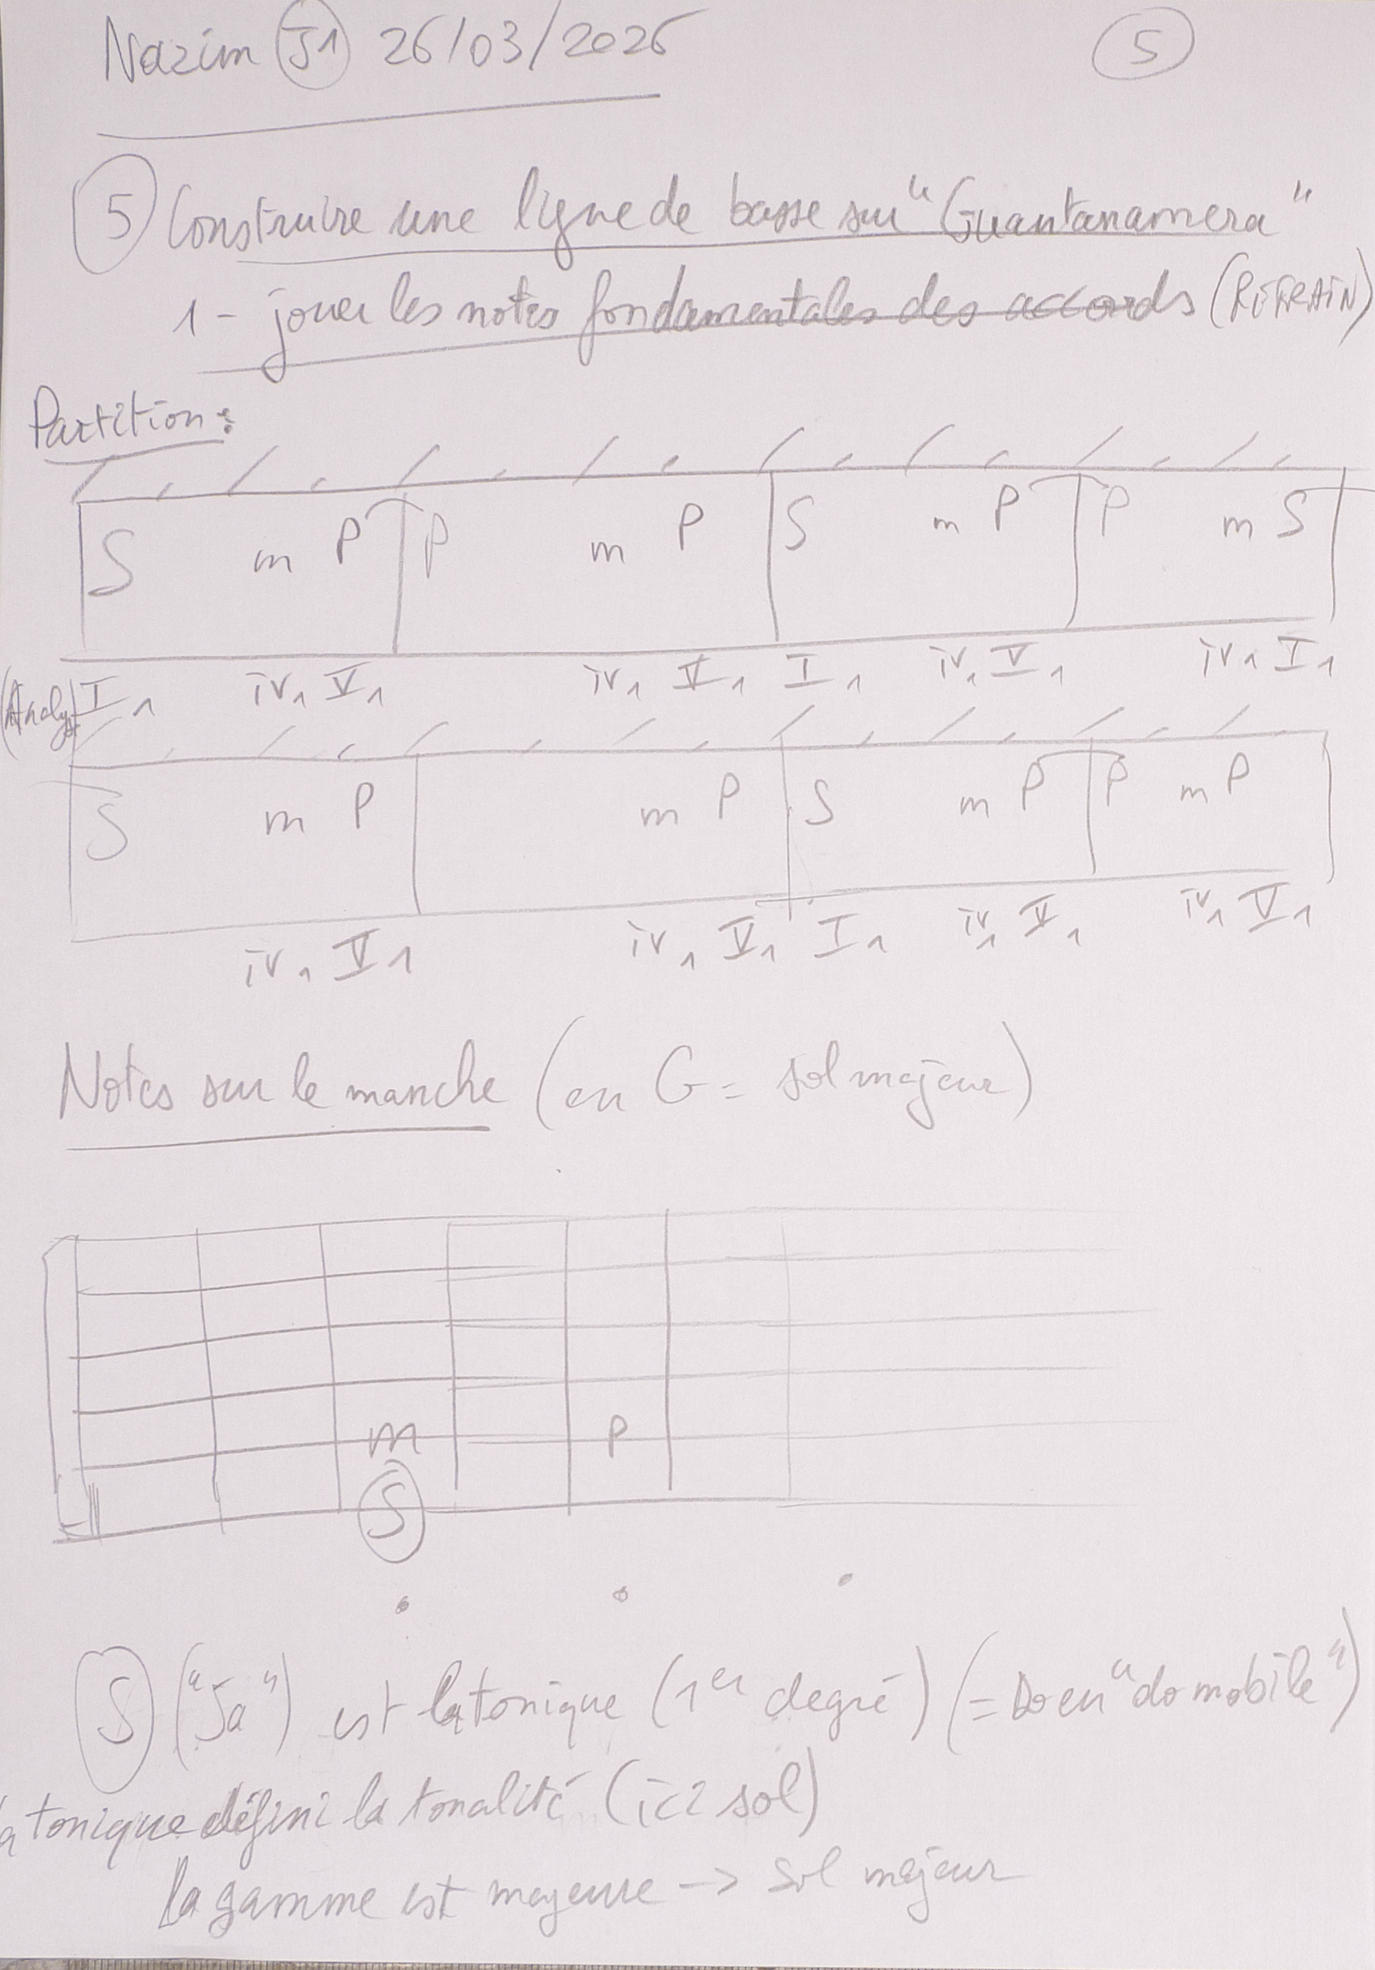 Nazim J1 26/03/2026
5
5 Construire une ligne de basse sur "Guantanamera"
1 - jouer les notes fondamentales des accords (REFRAIN)
Partition :
S m P P m P S m P P m S
(Analys I1 iv1 V1 iv1 V1 I1 iv1 V1 iv1 I1
S m P m P S m P P m P
iv1 V1 iv1 V1 I1 iv1 V1 iv1 V1
Notes sur le manche (en G = sol majeur)
m P
S
S ("Sa") est la tonique (1er degré) (= Do en "do mobile")
la tonique défini la tonalité (ici sol)
la gamme est mayeure -> sol majeur